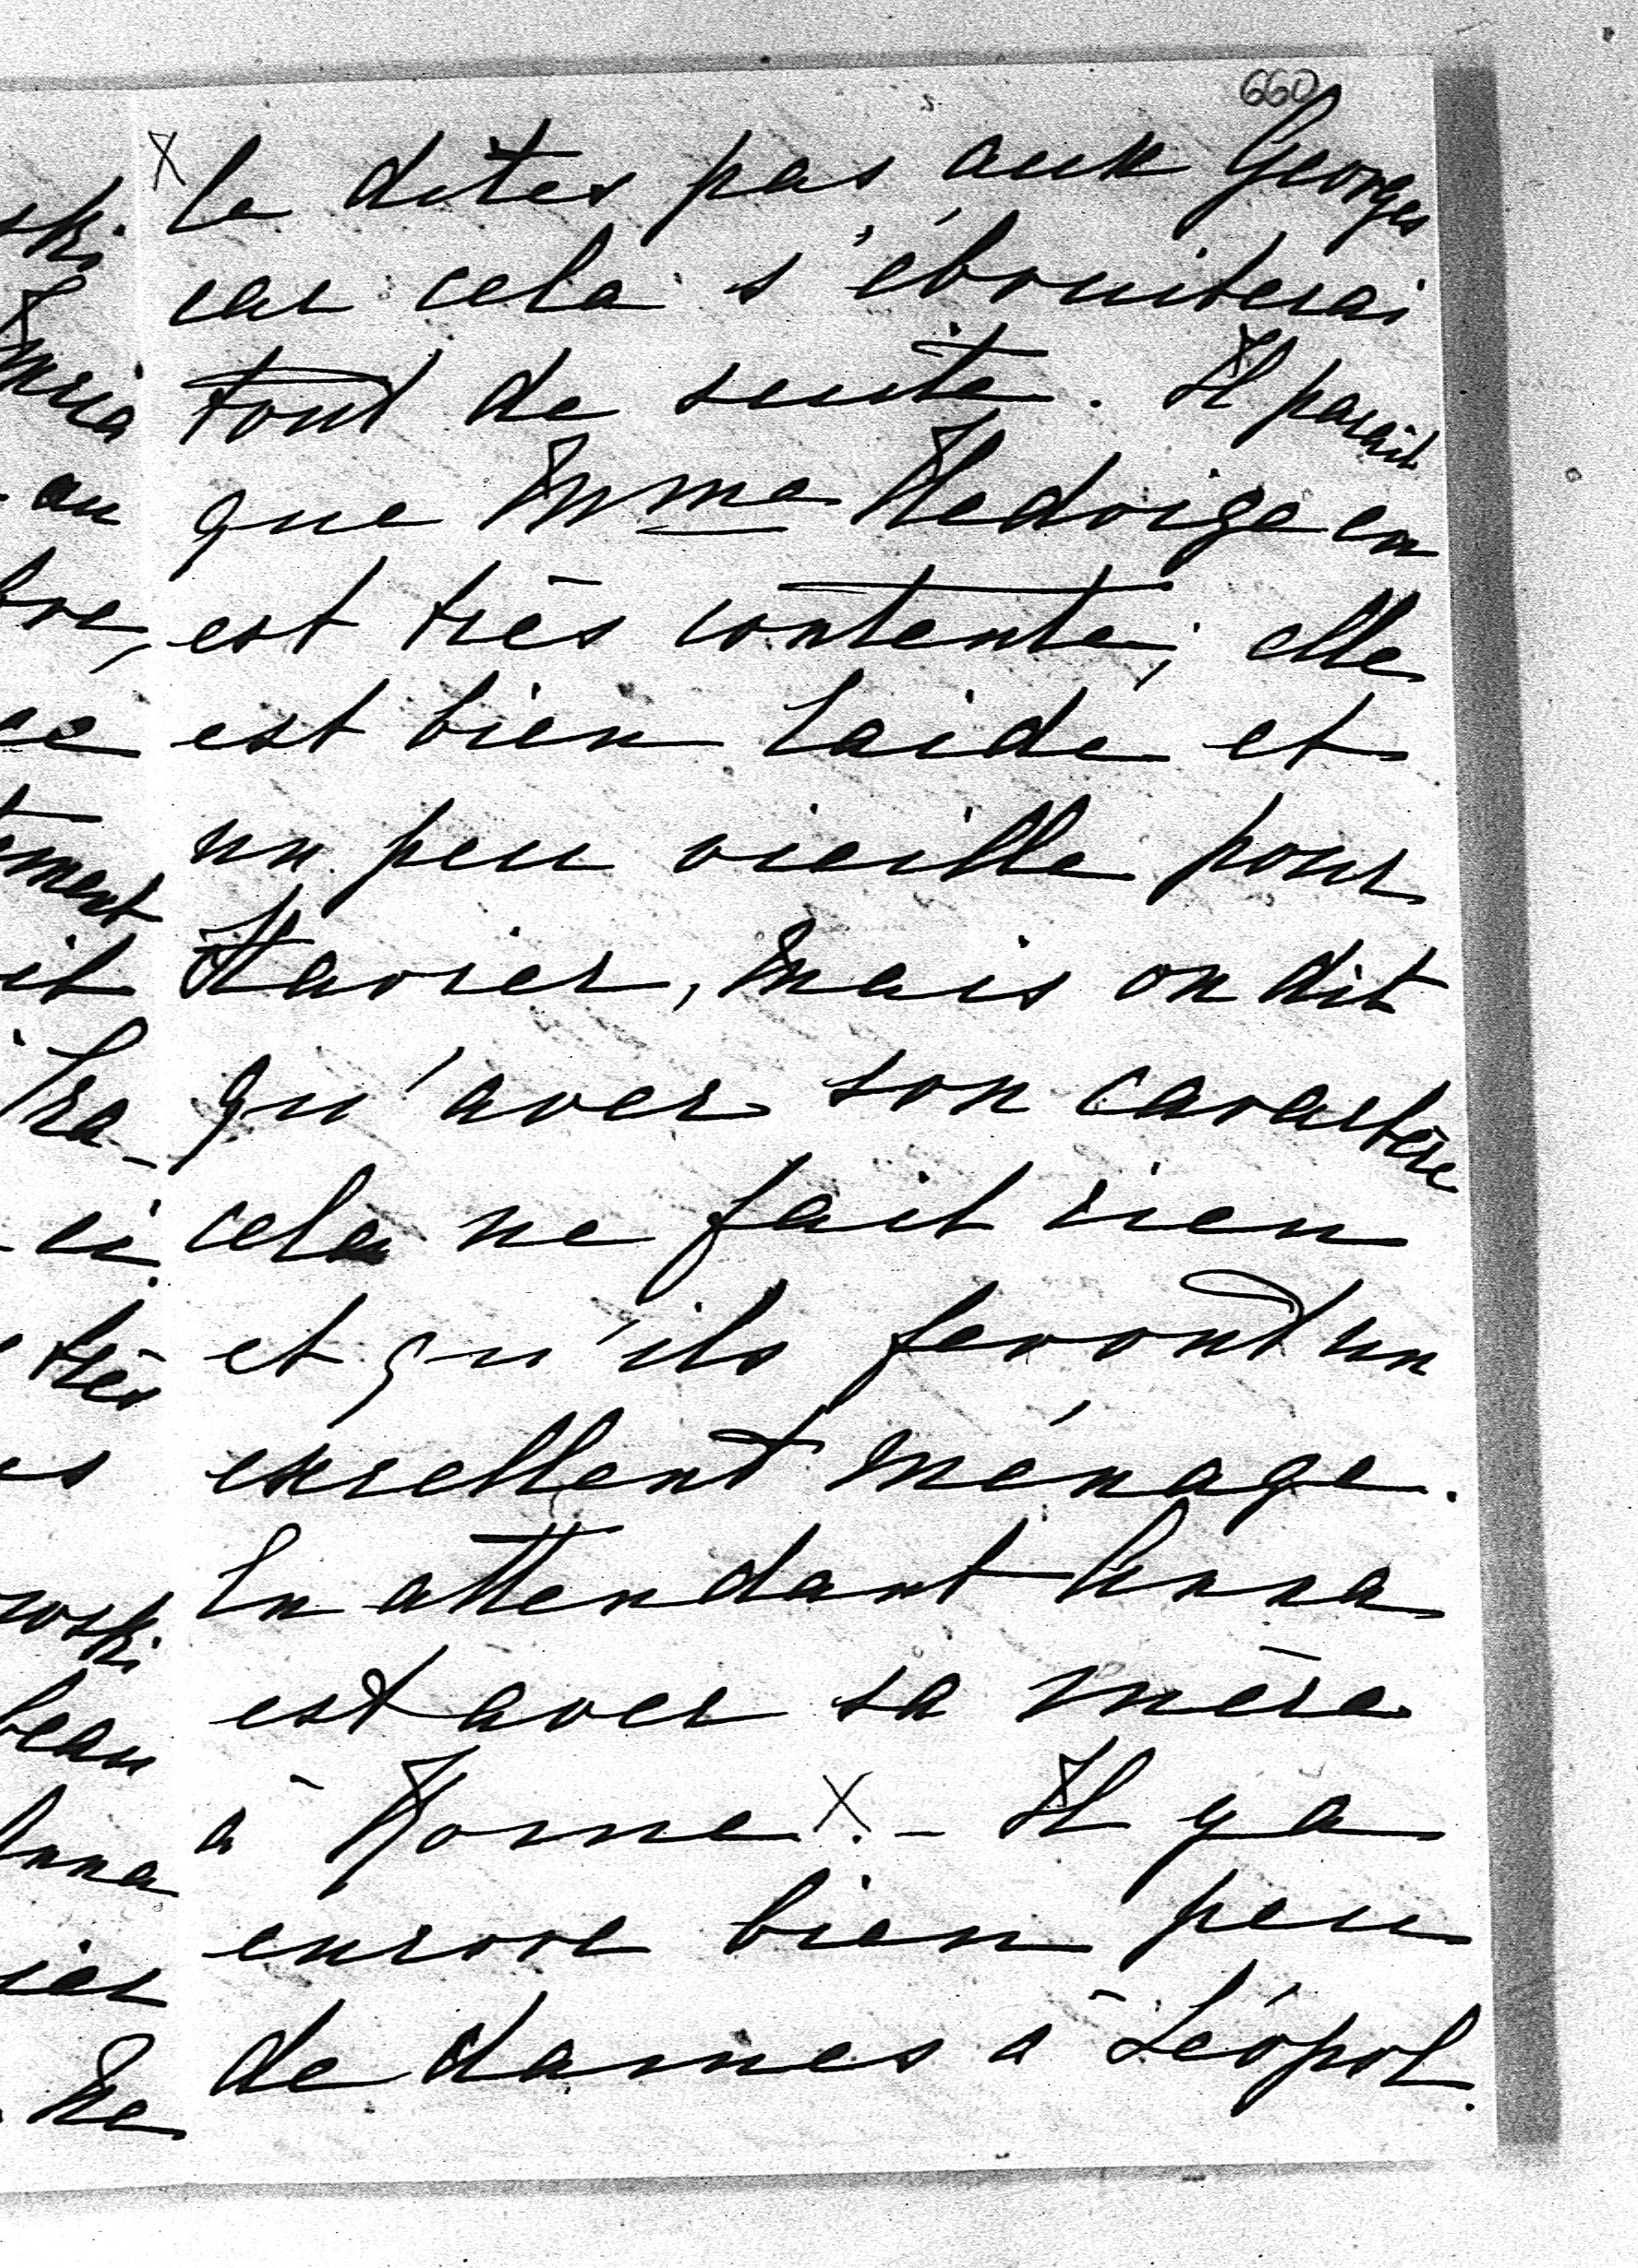 660
X le dites pas aux Georges
car cela s'ébruiterai
tout de suite. Il parait
que Mme Hedvige en
est très contente; elle
est bien laide et
un peu vieille pour
Xavier, mais on dit
qu'avec son caractère
cela ne fait rien
et qu'ils feront un
excellent ménage.
En attendant Anna
est avec sa mère
à Rome X. - Il y a
encore bien peu
de dames à Léopol.